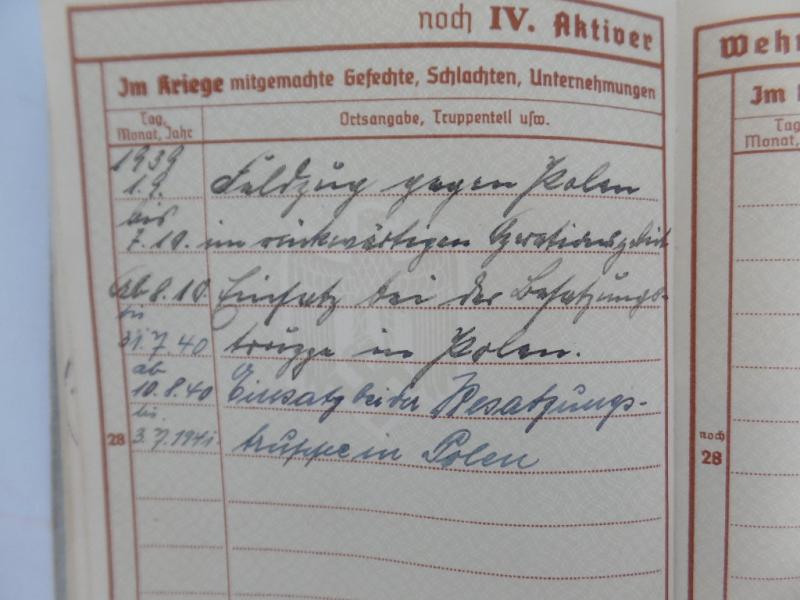 noch IV. Aktiver
Im Kriege mitgemachte Gefechte, Schlachten, Unternehmungen
Tag, Monat, Jahr
Ortsangabe, Truppenteil usw.
1939
1.9. Feldzug gegen Polen
bis
7.10. im rückwärtigen Operationsgebiet
Ab 8.10. Einsatz bei der Besatzungs-
bis
31.7.40 truppe in Polen.
ab
10.8.40 Einsatz bei der Besatzungs-
bis
28 3.7.1941. truppe in Polen
Wehr
Im
Tag
Monat,
noch
28